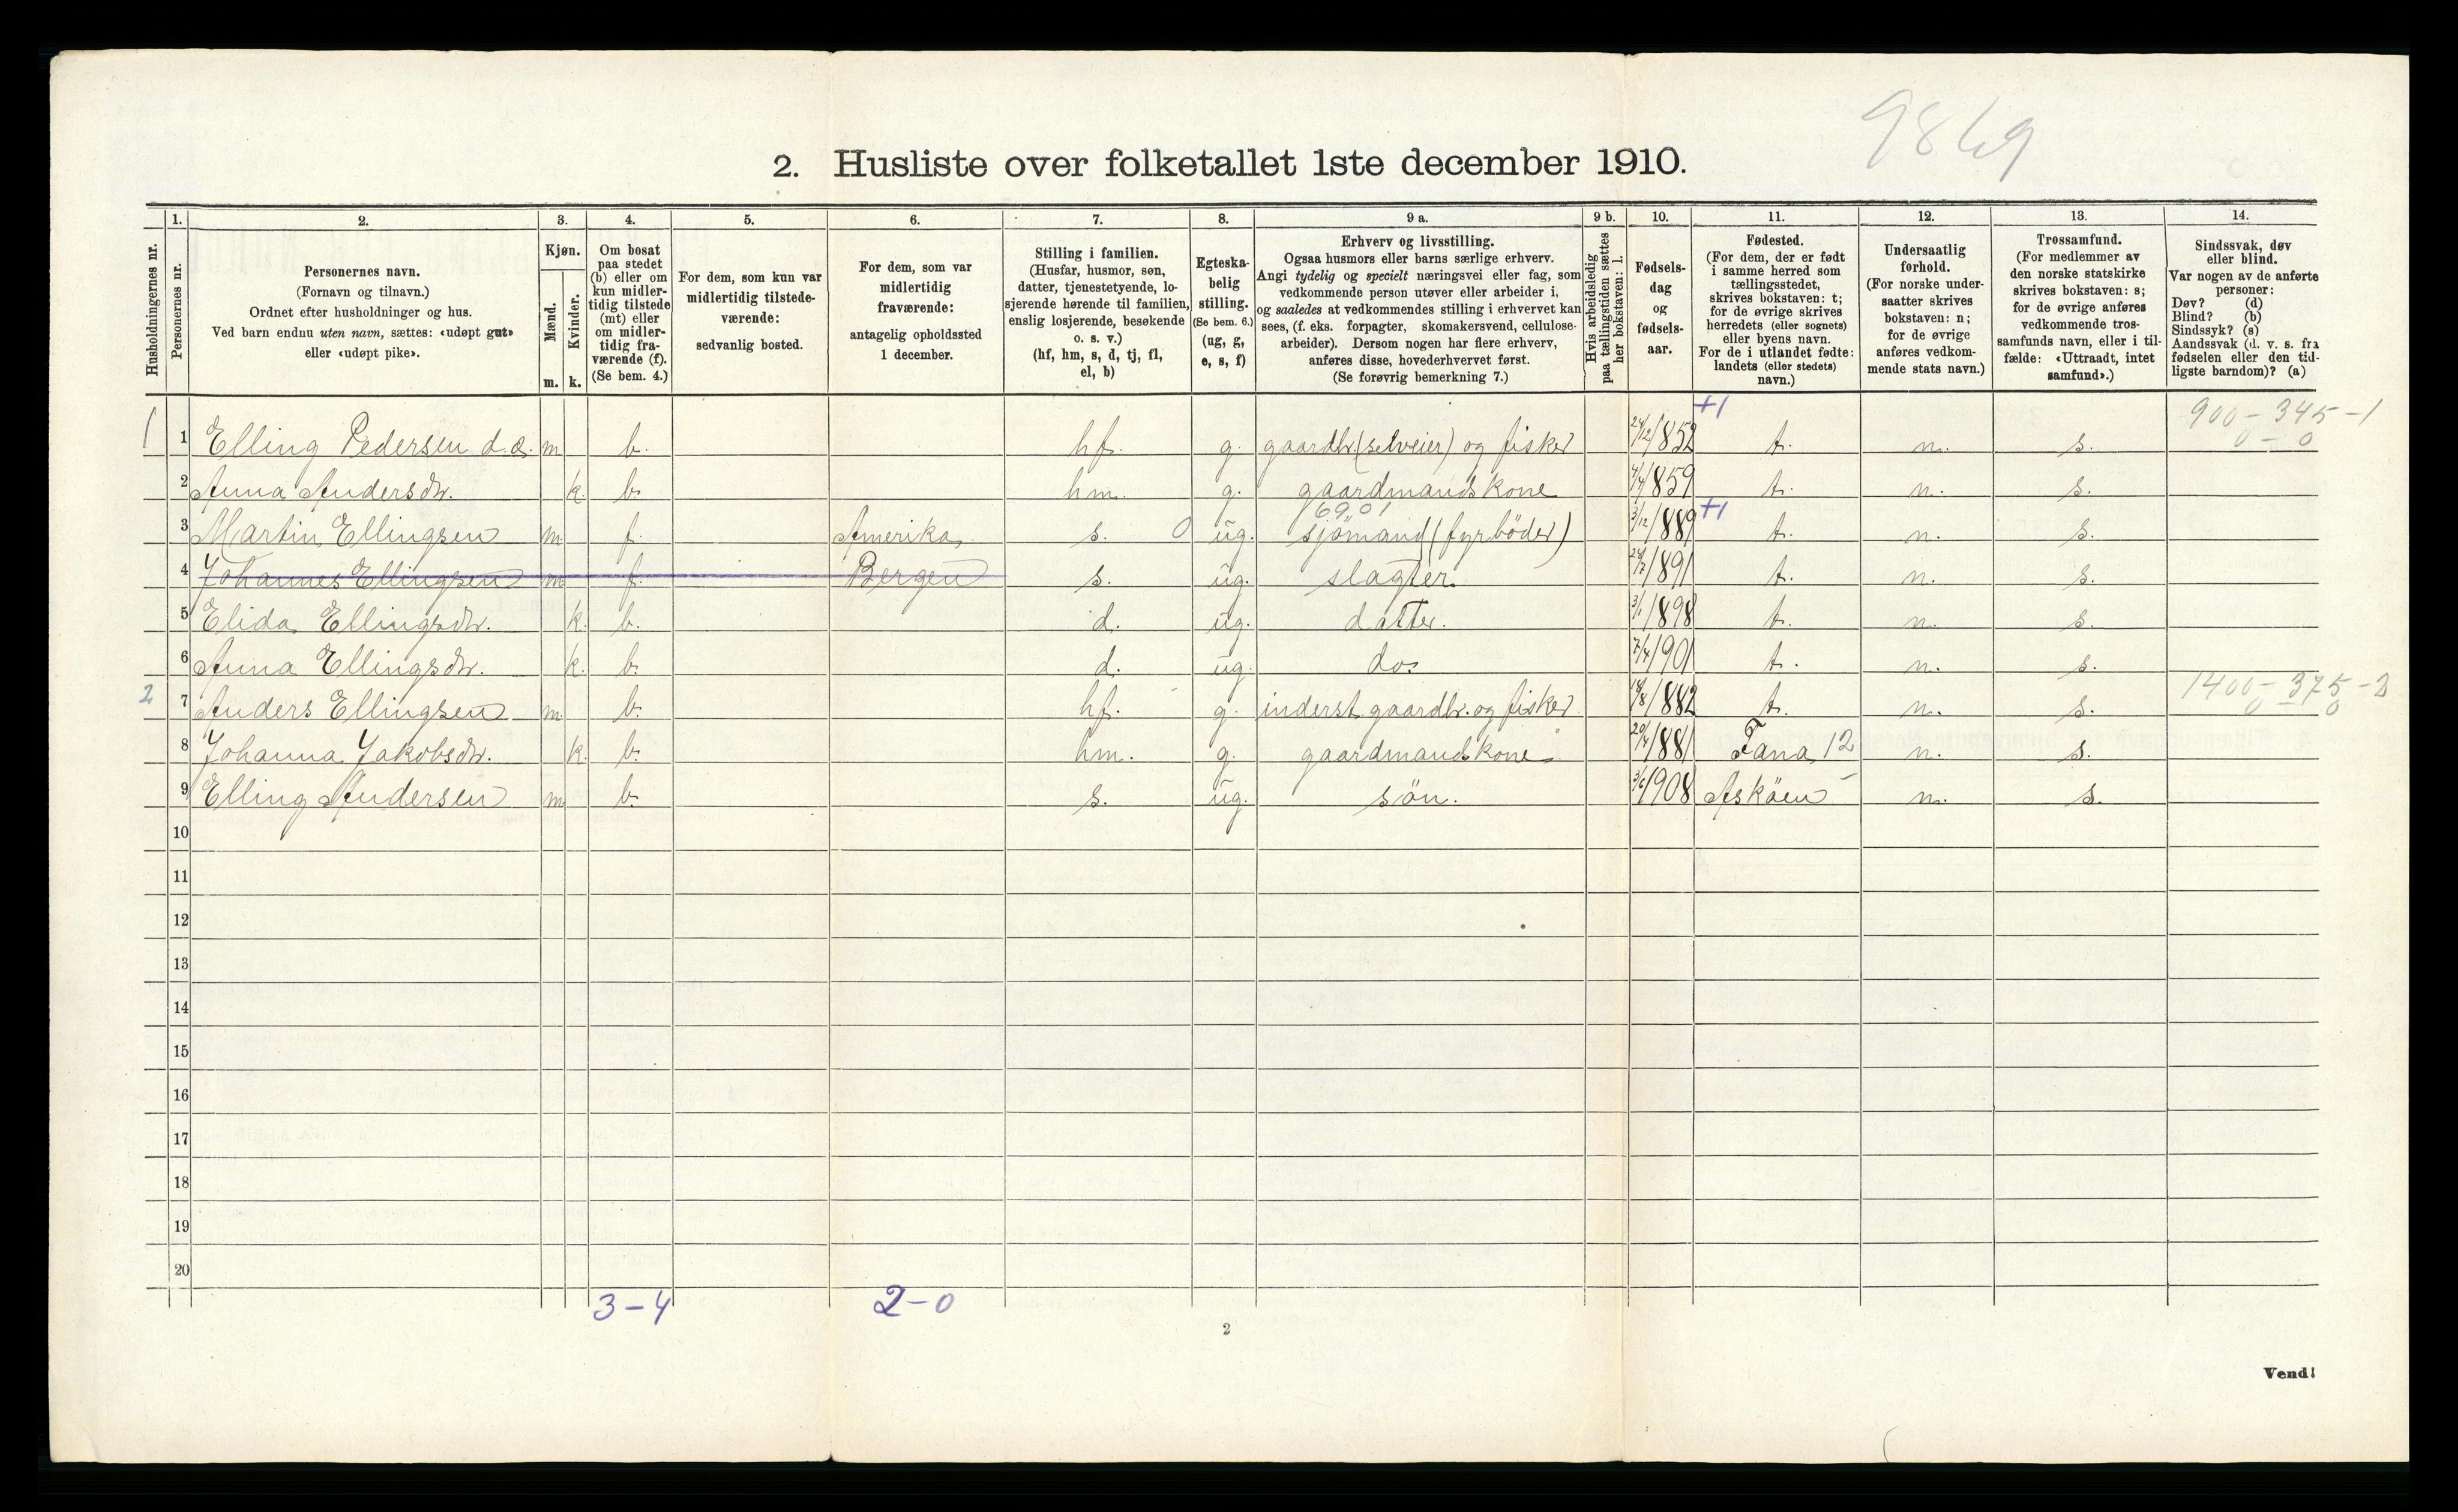 9869
2. Husliste over folketallet 1ste december 1910.
Husholdningernes nr.
1. Personernes nr.
2. Personernes navn.
(Fornavn og tilnavn.)
Ordnet efter husholdninger og hus.
Ved barn endnu uten navn, sættes: «udøpt gut»
eller «udøpt pike».
3. Kjøn.
Mænd. Kvinder.
m. k.
4. Om bosat
paa stedet
(b) eller om
kun midler-
tidig tilstede
(mt) eller
om midler-
tidig fra-
værende (f).
(Se bem. 4.)
5. For dem, som kun var
midlertidig tilstede-
værende:
sedvanlig bosted.
6. For dem, som var
midlertidig
fraværende:
antagelig opholdssted
1 december.
7. Stilling i familien.
(Husfar, husmor, søn,
datter, tjenestetyende, lo-
sjerende hørende til familien,
enslig losjerende, besøkende
o. s. v.)
(hf, hm, s, d, tj, fl,
el, b)
8. Egteska-
belig
stilling.
(Se bem. 6.)
(ug, g,
e, s, f)
9 a. Erhverv og livsstilling.
Ogsaa husmors eller barns særlige erhverv.
Angi tydelig og specielt næringsvei eller fag, som
vedkommende person utøver eller arbeider i,
og saaledes at vedkommendes stilling i erhvervet kan
sees, (f. eks. forpagter, skomakersvend, cellulose-
arbeider). Dersom nogen har flere erhverv,
anføres disse, hovederhvervet først.
(Se forøvrig bemerkning 7.)
9 b. Hvis arbeidsledig
paa tællingstiden sættes
her bokstaven: l.
10. Fødsels-
dag
og
fødsels-
aar.
11. Fødested.
(For dem, der er født
i samme herred som
tællingsstedet,
skrives bokstaven: t;
for de øvrige skrives
herredets (eller sognets)
eller byens navn.
For de i utlandet fødte:
landets (eller stedets)
navn.)
12. Undersaatlig
forhold.
(For norske under-
saatter skrives
bokstaven: n;
for de øvrige
anføres vedkom-
mende stats navn.)
13. Trossamfund.
(For medlemmer av
den norske statskirke
skrives bokstaven: s;
for de øvrige anføres
vedkommende tros-
samfunds navn, eller i til-
fælde: «Uttraadt, intet
samfund».)
14. Sindssvak, døv
eller blind.
Var nogen av de anførte
personer:
Døv? (d)
Blind? (b)
Sindssyk? (s)
Aandssvak (d. v. s. fra
fødselen eller den tid-
ligste barndom)? (a)
+1 900 – 345 – 1
0 – 0
1 1 Elling Pedersen d.æ. m b. hf. g. gaardbr. (selveier) og fisker 24/12 1852 t. n. s.
2 Anna Andersdtr. k. b. hm. g. gaardmandskone 4/4 1859 t. n. s.
6901 +1
3 Martin Ellingsen m f. Amerika s. 0 ug. sjömand (fyrböder) 3/12 1889 t. n. s.
4 Johannes Ellingsen m f. Bergen s. ug. slagter. 24/7 1891 t. n. s.
5 Elida Ellingsdtr. k. b. d. ug. datter. 3/1 1898 t. n. s.
6 Anna Ellingsdtr. k. b. d. ug. do. 7/4 1901 t. n. s.
1400 – 375 – 2
0 0
2 7 Anders Ellingsen m b. hf. g. inderst gaardbr. og fisker 18/8 1882 t. n. s.
8 Johanna Jakobsdtr. k. b. hm. g. gaardmandskone 20/4 1881 Fana 12 n. s.
9 Elling Andersen m b. s. ug. sön. 3/6 1908 Asköen n. s.
10
11
12
13
14
15
16
17
18
19
20
3 – 4 2 – 0
2
Vend!